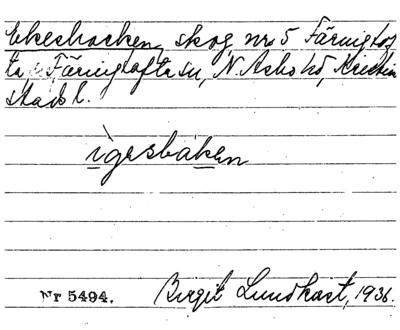 Ekesbacken, skog, nr 5 Färingtof
ta, Färingtofta sn, N. Åsbo hd, Kristian
stads l.
igesbaken
Nr 5494.
Birgit Lundkvist, 1936.